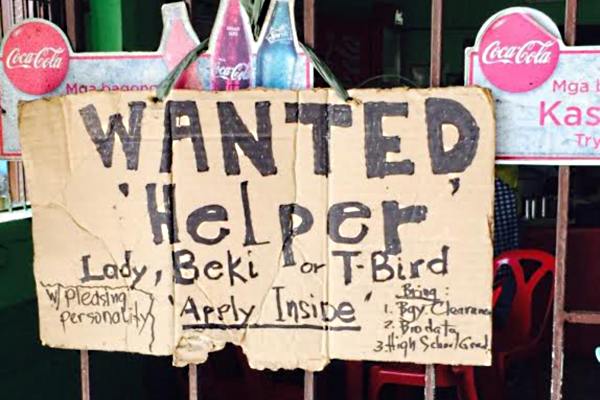 Coca-Cola
Mga bagong
Coca-Cola
Coca-Cola
Mga b
Kas
Try
WANTED
'Helper'
Lady, Beki or T-Bird
w/ pleasing
personality
'Apply Inside'
Bring:
1. Bgy. Clearance
2. Biodata
3. High School Grad.